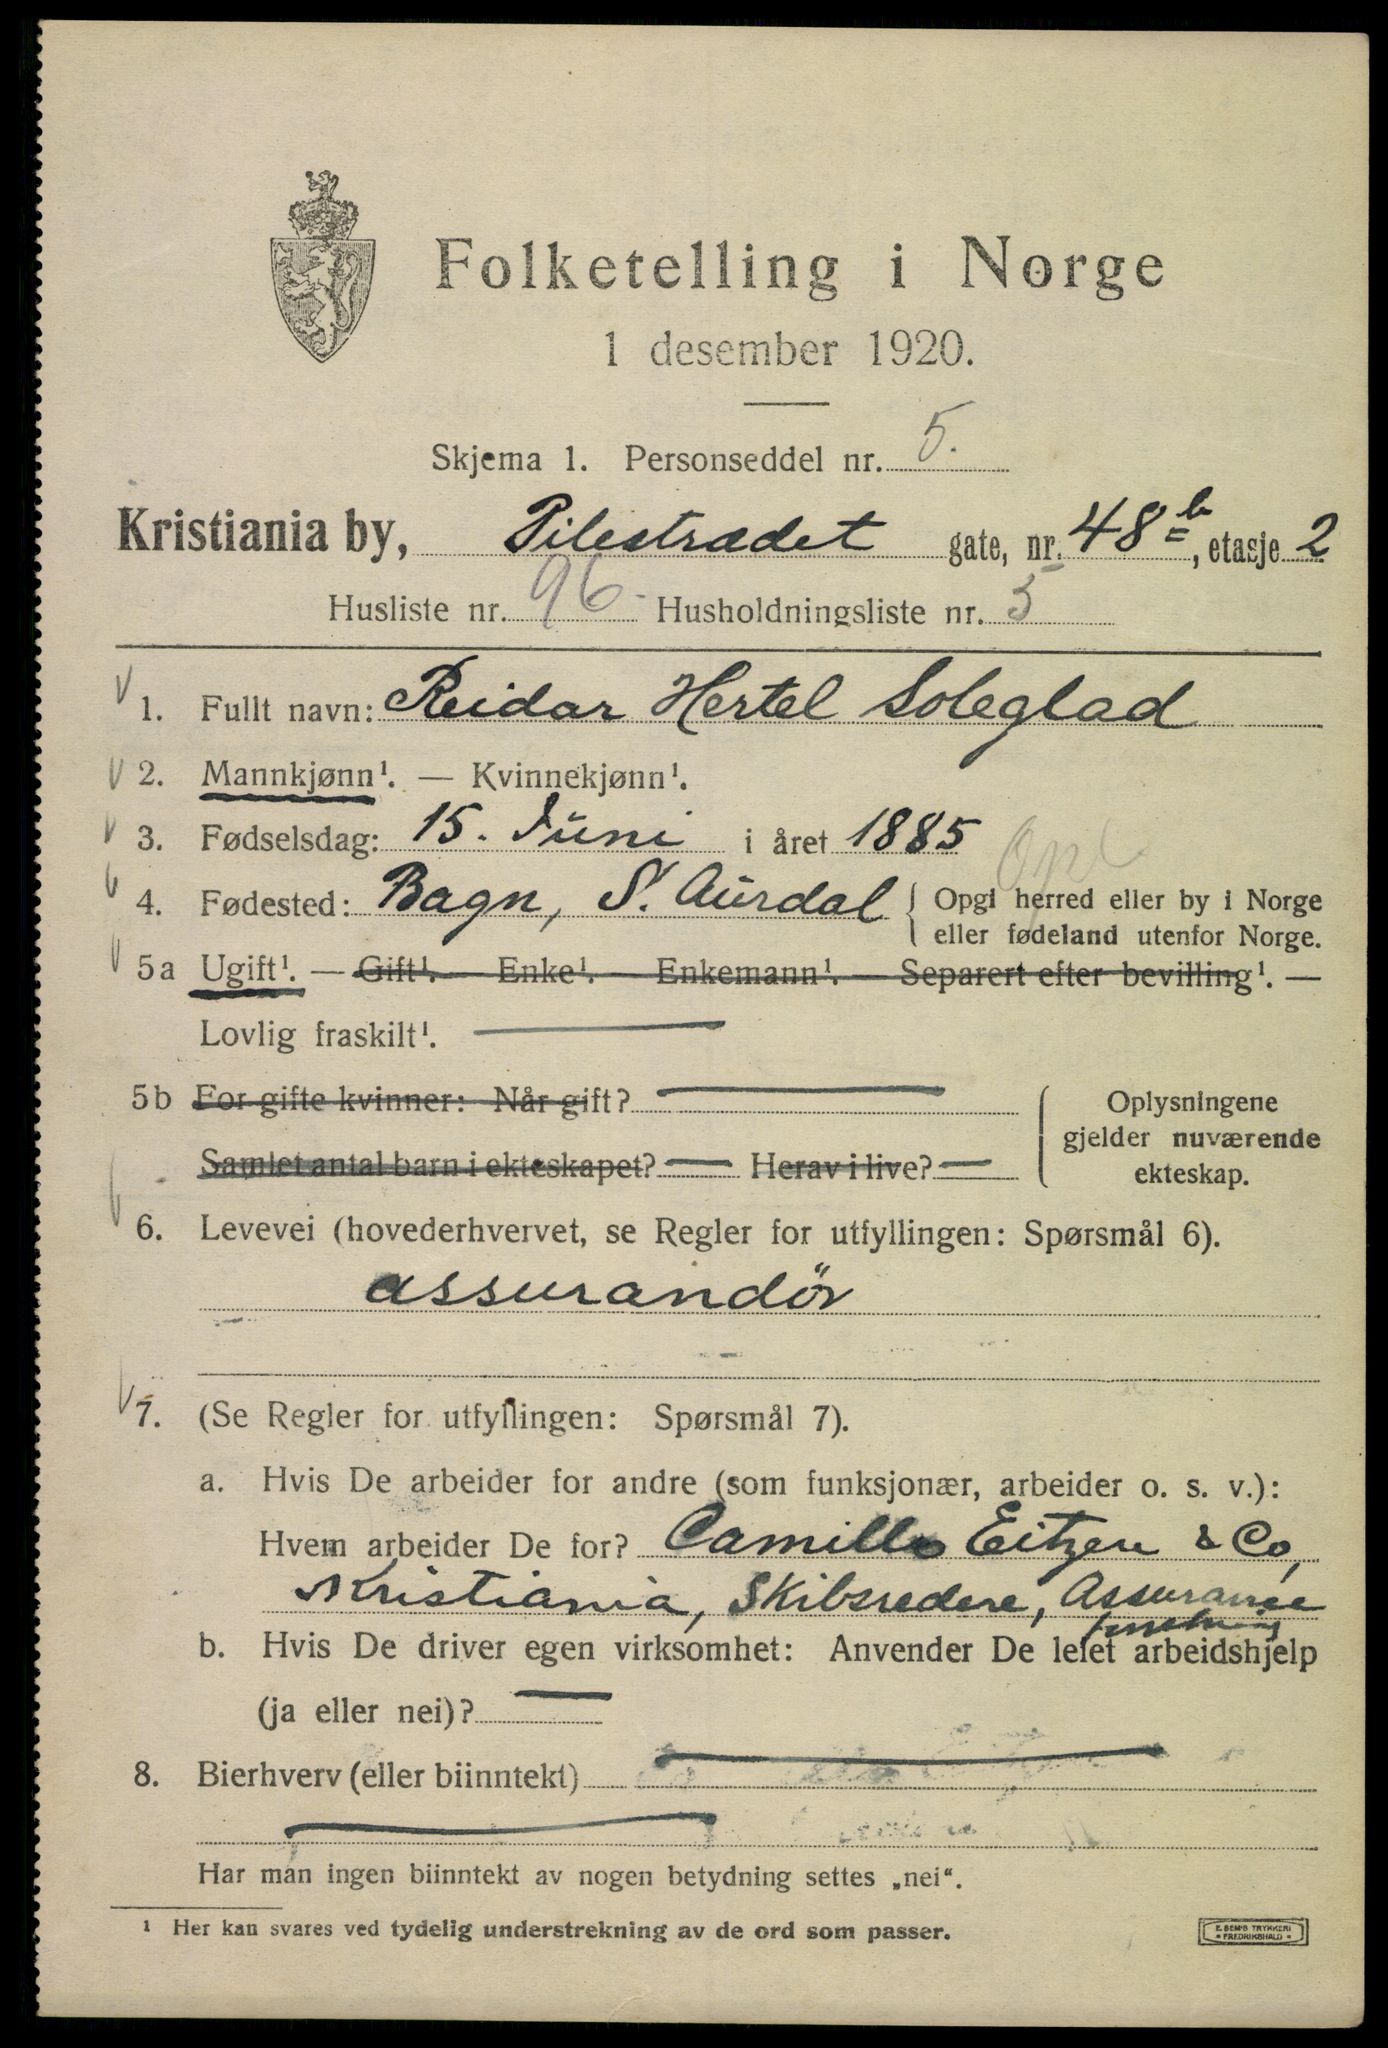 Folketelling i Norge
1 desember 1920.
Skjema 1. Personseddel nr. 5.
Kristiania by, Pilestrædet gate, nr. 48 b, etasje 2
Husliste nr. 96. Husholdningsliste nr. 5
1. Fullt navn: Reidar Hertel Soleglad
2. Mannkjønn¹. — Kvinnekjønn¹.
3. Fødselsdag: 15. Juni i året 1885
Opl
4. Fødested: Bagn, S. Aurdal { Opgi herred eller by i Norge
eller fødeland utenfor Norge.
5a Ugift¹. — Gift¹. — Enke¹. — Enkemann¹. — Separert efter bevilling¹. —
Lovlig fraskilt¹.
5b For gifte kvinner: Når gift?
Samlet antal barn i ekteskapet? — Herav i live? —
Oplysningene
gjelder nuværende
ekteskap.
6. Levevei (hovederhvervet, se Regler for utfyllingen: Spørsmål 6).
assurandör
7. (Se Regler for utfyllingen: Spørsmål 7).
a. Hvis De arbeider for andre (som funksjonær, arbeider o. s. v.):
Hvem arbeider De for? Camillo Eitzen & Co,
Kristiania, Skibsredere, Assurance
b. Hvis De driver egen virksomhet: Anvender De leiet arbeidshjelp
(ja eller nei)? —
8. Bierhverv (eller biinntekt)
Har man ingen biinntekt av nogen betydning settes „nei“.
¹ Her kan svares ved tydelig understrekning av de ord som passer.
E. SEM'S TRYKKERI
• FREDRIKSHALD •